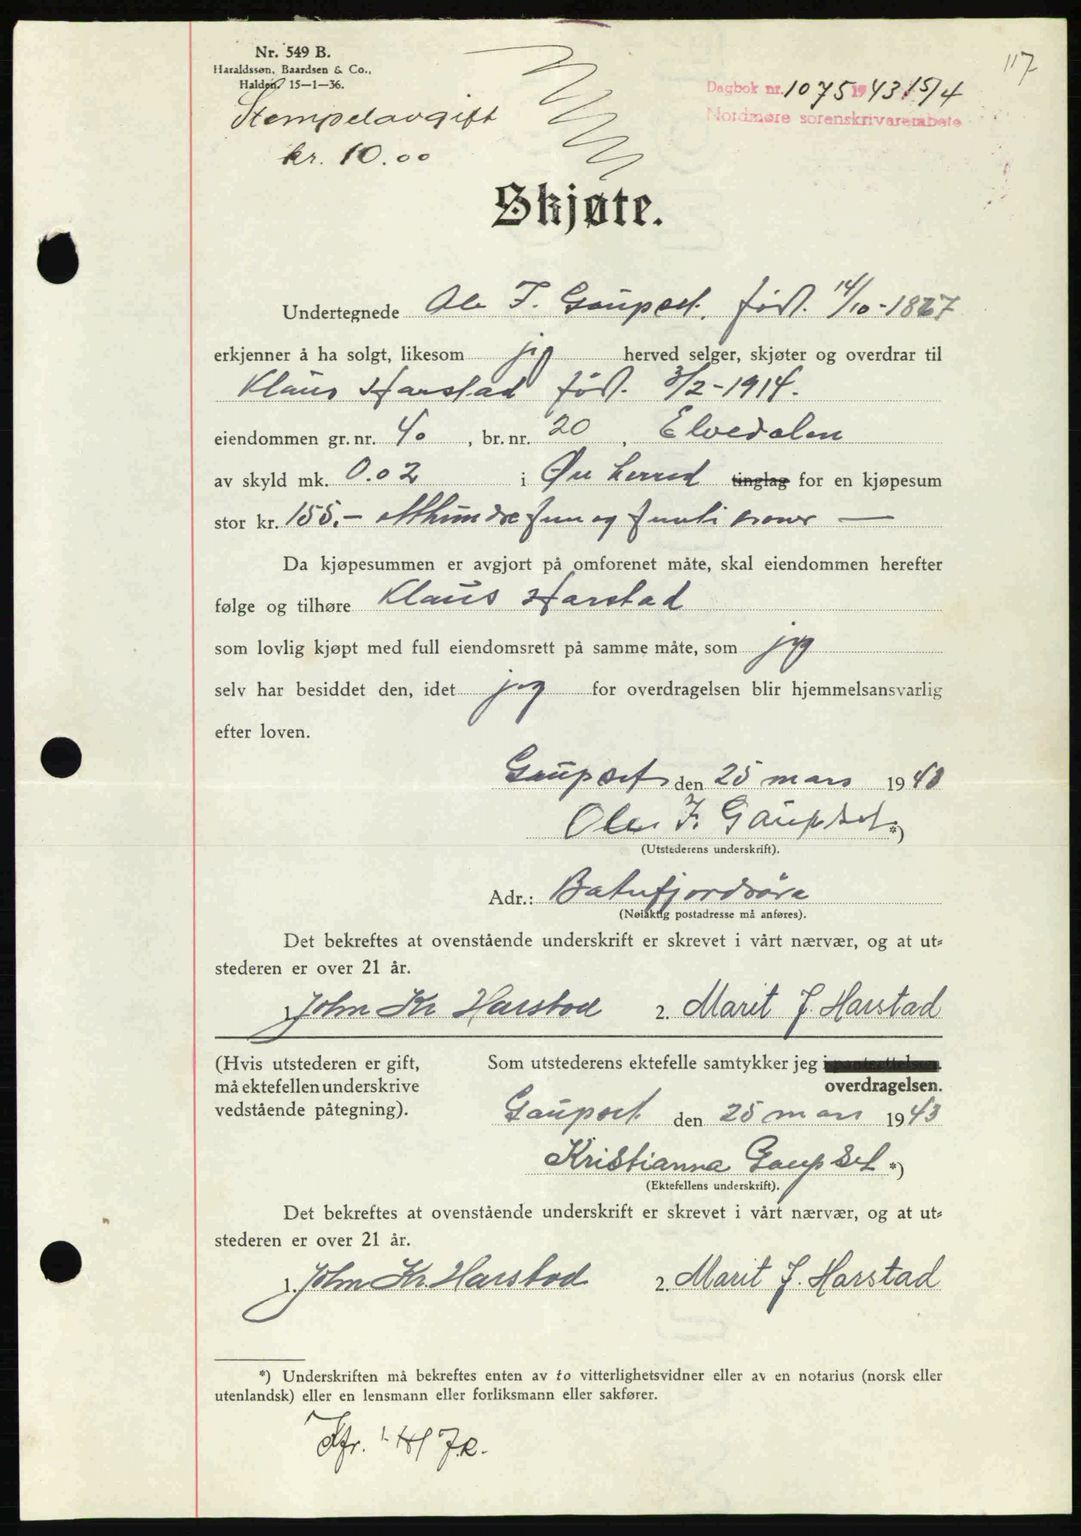 117
Nr. 549 B.
Haraldssøn, Baardsen & Co.,
Halden. 15—1—36.
Dagbok nr. 1075 1943 15/4
Nordmøre sorenskrivarembete
Stempelavgift
kr. 10.00
Skjøte.
Undertegnede Ole F. Gaupset, født. 14/10-1867
erkjenner å ha solgt, likesom jeg herved selger, skjøter og overdrar til
Klaus Harstad født. 3/2-1914.
eiendommen gr. nr. 40, br. nr. 20, Elvedalen
av skyld mk. 0.02 i Øre herred tinglag for en kjøpesum
stor kr. 155.- etthundre fem og femti kroner —
Da kjøpesummen er avgjort på omforenet måte, skal eiendommen herefter
følge og tilhøre Klaus Harstad
som lovlig kjøpt med full eiendomsrett på samme måte, som jeg
selv har besiddet den, idet jeg for overdragelsen blir hjemmelsansvarlig
efter loven.
Gaupset den 25 mars 1943
Ole F. Gaupset *)
(Utstederens underskrift).
Adr.: Batnfjordsøra
(Nøiaktig postadresse må anføres).
Det bekreftes at ovenstående underskrift er skrevet i vårt nærvær, og at ut=
stederen er over 21 år.
1. John Kr Harstad 2. Marit J. Harstad
(Hvis utstederen er gift, Som utstederens ektefelle samtykker jeg i
må ektefellen underskrive overdragelsen.
vedstående påtegning). Gaupset den 25 mars 1943
Kristianna Gaupset *)
(Ektefellens underskrift).
Det bekreftes at ovenstående underskrift er skrevet i vårt nærvær, og at ut=
stederen er over 21 år.
1. John Kr. Harstad 2. Marit J. Harstad
*) Underskriften må bekreftes enten av to vitterlighetsvidner eller av en notarius (norsk eller
utenlandsk) eller en lensmann eller forliksmann eller sakfører.